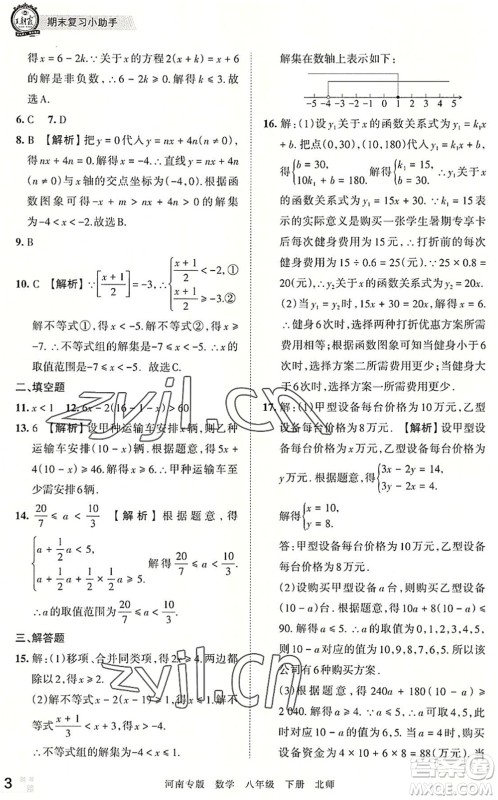 王朝霞
期末复习小助手
得 x=6-2k. ∵关于 x 的方程 2(x+k)=x+6 的
解是非负数,∴6-2k≥0. 解不等式得 k≤3. 故
选 A.
6. C  7. D
8. B 【解析】把 y=0 代入 y=nx+4n(n≠0),得
nx+4n=0. 解得 x=-4. ∴直线 y=nx+4n(n
≠0)与 x 轴的交点坐标为(-4,0). 根据函数
图象可得 -x+m>nx+4n>0 的解集为
-4<x<-2. 故选 B.
9. B
10. C 【解析】∵[(x+1)/2]=-3,∴{(x+1)/2<-2,① (x+1)/2≥-3.②
解不等式①,得 x<-5. 解不等式②,得 x≥
-7. ∴不等式组的解集为 -7≤x<-5. ∴x 的
取值范围是 -7≤x<-5. 故选 C.
二、填空题
11. x<1  12. 6x-2(16-1-x)>60
13. 6 【解析】设甲种运输车安排 x 辆,则乙种
运输车安排(10-x)辆. 根据题意,得 5x+
4(10-x)≥46. 解得 x≥6. ∴甲种运输车至
少需安排 6 辆.
14. 20/7≤a<10/3 【解析】根据题意,得
{a+1/2a<5, a+1/2a+1/4a≥5. 解得 20/7≤a<10/3.
∴a 的取值范围为 20/7≤a<10/3.
三、解答题
15. 解:(1)移项、合并同类项,得 2x>-2. 系数化
为 1,得 x>-1.
(2)解不等式 x-2(x-1)≥1,得 x≤1. 解不
等式 (x+1)/3<x+3,得 x>-4. ∴原不等式组的
解集为 -4<x≤1.
解集在数轴上表示如图所示.
-5 -4 -3 -2 -1 0 1 2 3 4 5
16. 解:(1)设 y₁ 关于 x 的函数关系式为 y₁=k₁x
+b. 把点(0,30),(10,180)代入 y₁=k₁x+b,
得{b=30, 10k₁+b=180. 解得{k₁=15, b=30. ∴y₁ 关于 x
的函数关系式为 y₁=15x+30. ∵方案一每
次健身费用按六折优惠,k₁=15 表示的实际
意义是购买一张学生暑期专享卡
后每次健身费用为 15 元,∴打折前的每次
健身费用为 15÷0.6=25(元). ∴k₂=25×0.8=
20(元),∴y₂ 关于 x 的函数关系式为 y₂=20x.
(2)当健身 6 次时,两种优惠方案所需费用
一样. 根据函数图象可知:当健身小于 6 次
时,选择方案二所需费用更少;当健身大
于 6 次时,选择方案一所需费用更少.
17. 解:(1)甲型设备每台价格为 10 万元,乙型
设备每台价格为 8 万元. 【解析】设甲型设
备每台价格为 x 万元,乙型设备每台价格
为 y 万元. 根据题意,得{3x-2y=14, 2x+4=3y.
解得{x=10, y=8.
答:甲型设备每台价格为 10 万元,乙型设备
每台价格为 8 万元.
(2)设购买甲型设备 a 台,则购买乙型设备
(10-a)台. 根据题意,得 10a+8(10-a)≤
90. 解得 a≤5. ∴a 的取值为 0,1,2,3,4,5,
即该公司有 6 种购买方案.
(3)根据题意,得 240a+180(10-a)≥
2 040. 解得 a≥4. ∴a 的取值为 4,5.
3
河南专版 数学 八年级 下册 北师
zyjl.cn